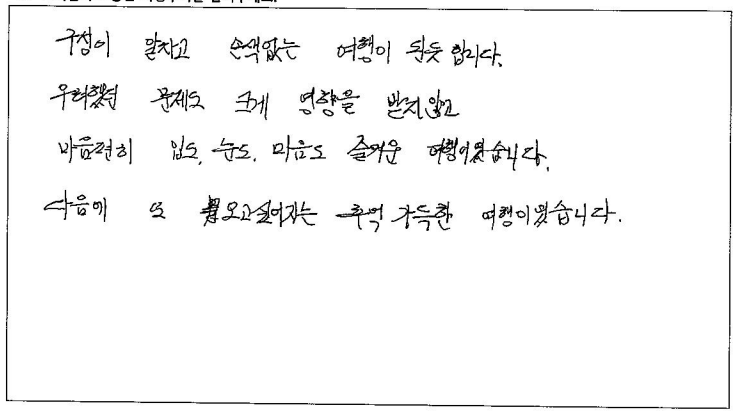 구성이 알차고 손색없는 여행이 된듯 합니다.
우려했던 문제도 크게 영향을 받지않고
마음편히 입도, 눈도, 마음도 즐거운 여행이었습니다.
다음에 또 오고싶어지는 추억 가득한 여행이었습니다.